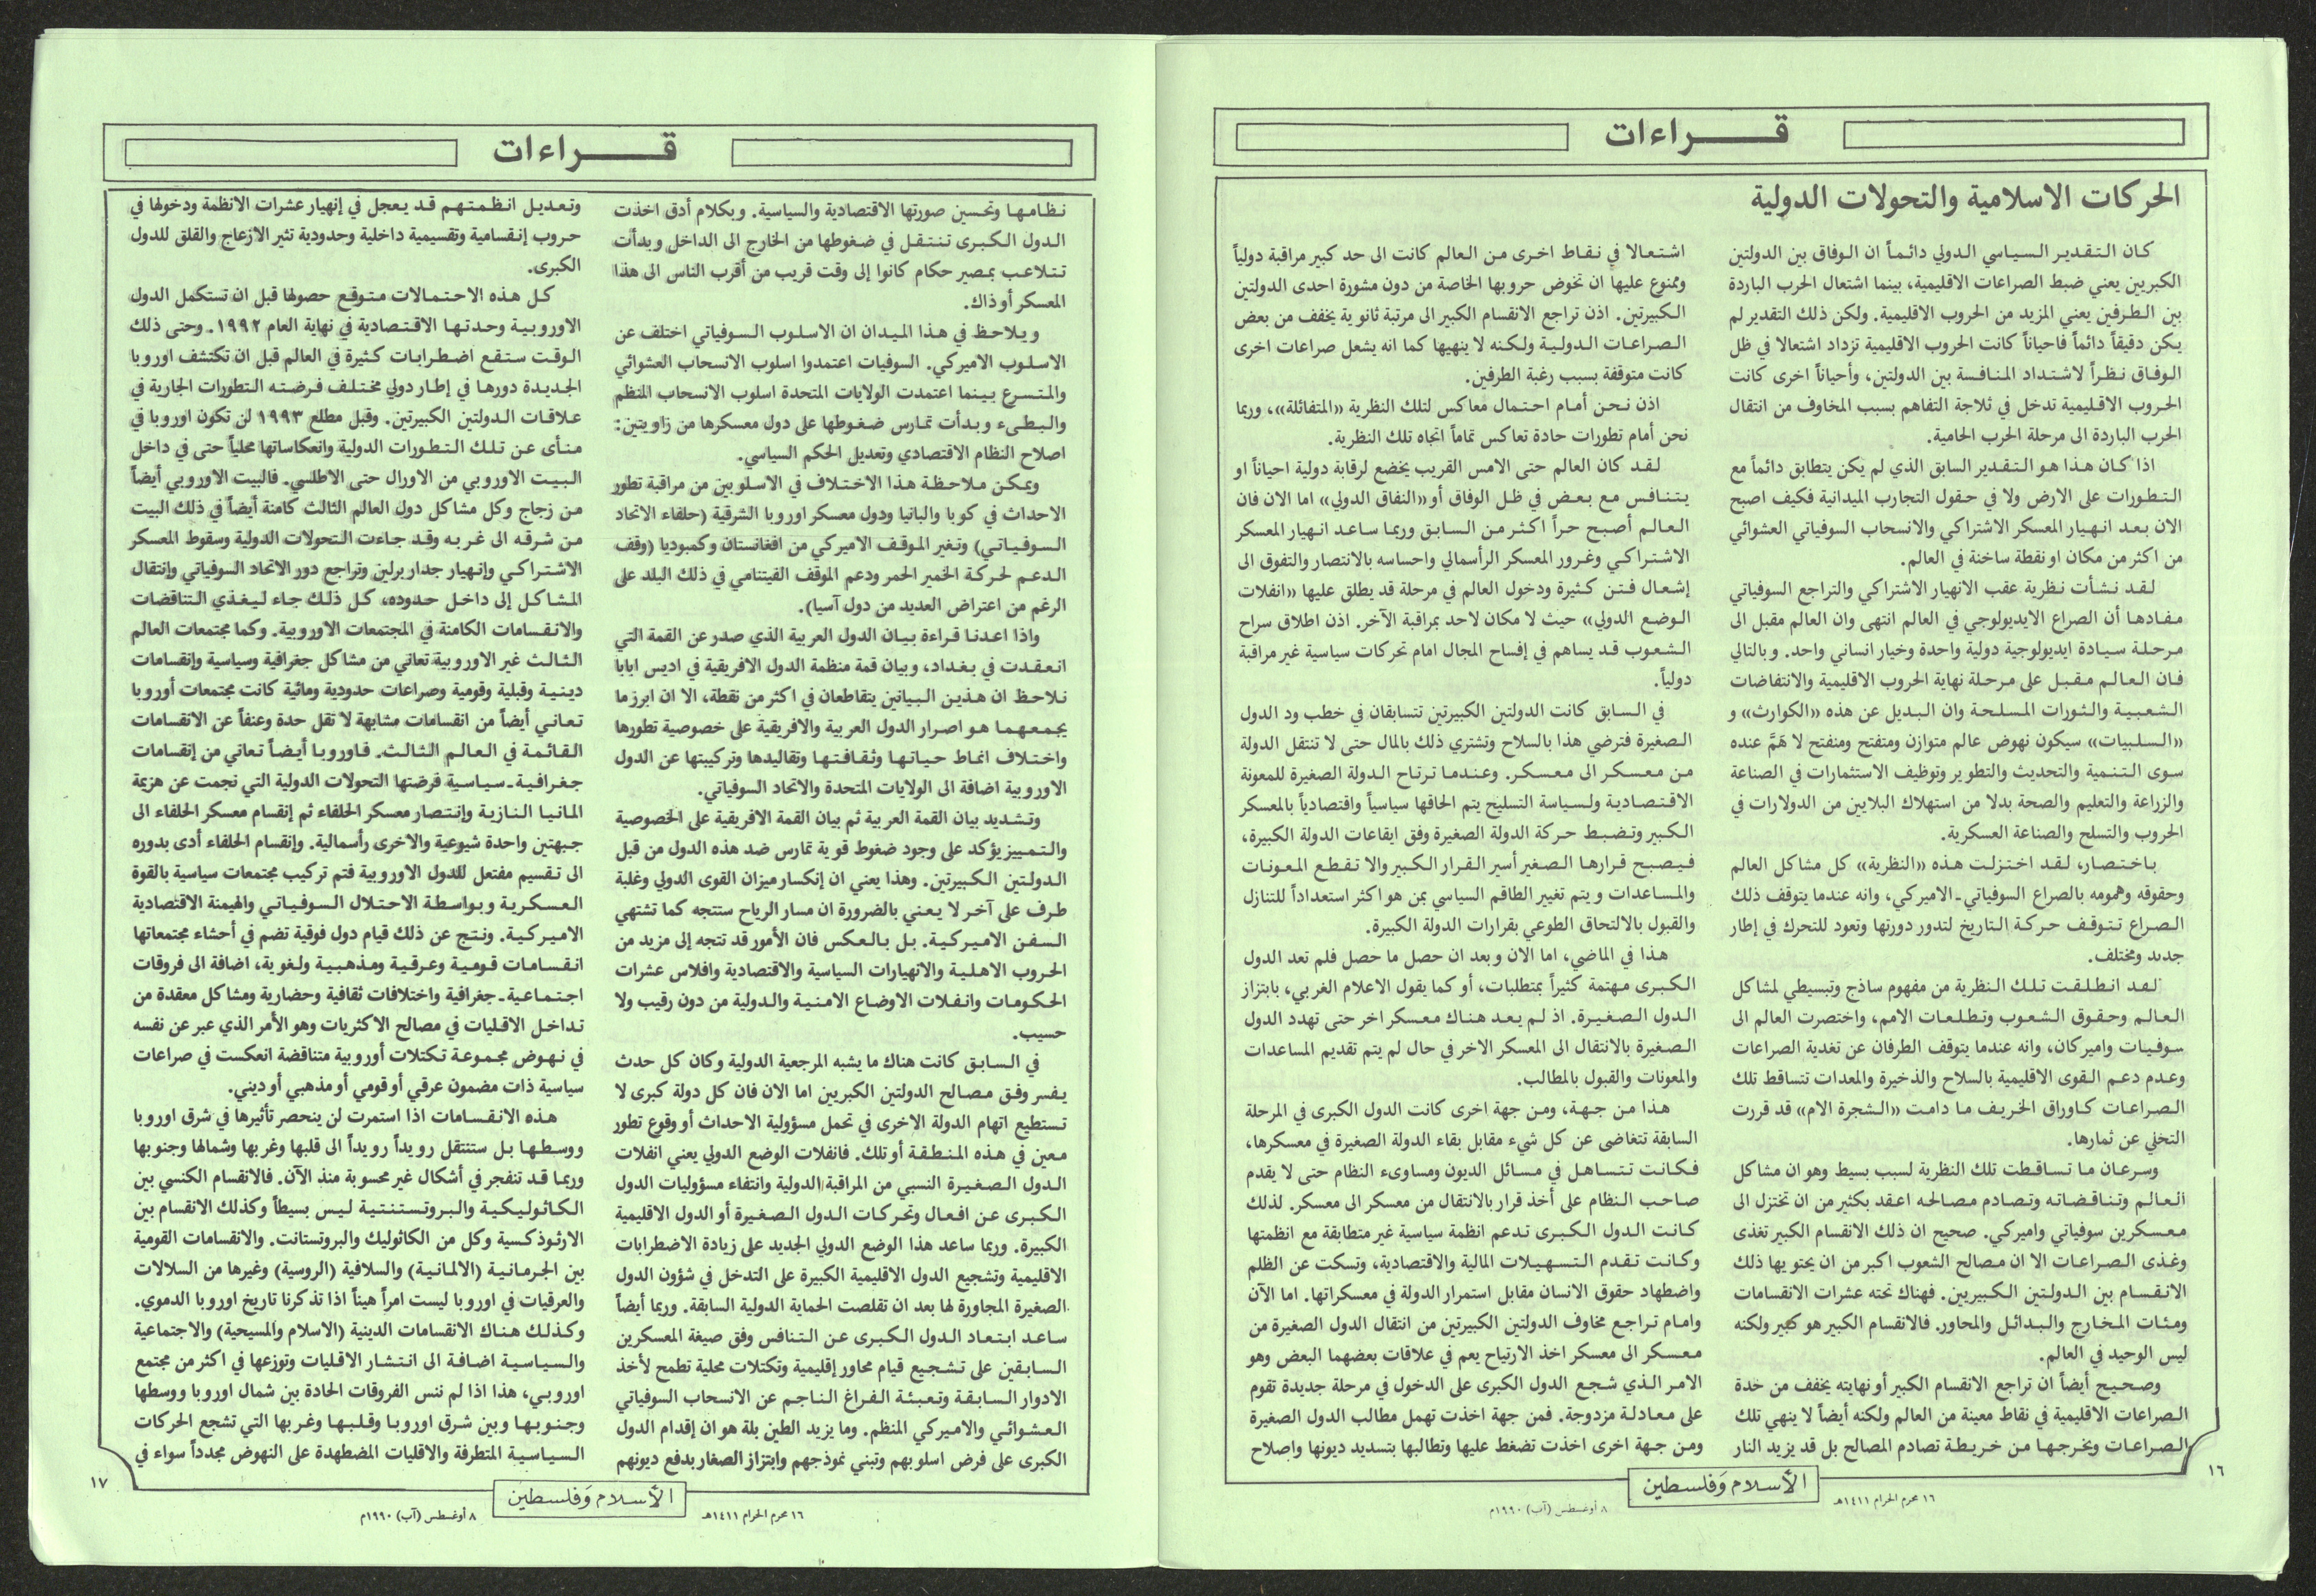 قــــراءات
الحركات الاسلامية والتحولات الدولية
كان التقدير السياسي الدولي دائماً ان الوفاق بين الدولتين
الكبريين يعني ضبط الصراعات الاقليمية، بينما اشتعال الحرب الباردة
بين الطرفين يعني المزيد من الحروب الاقليمية. ولكن ذلك التقدير لم
يكن دقيقاً دائماً فاحياناً كانت الحروب الاقليمية تزداد اشتعالا في ظل
الوفاق نظراً لاشتداد المنافسة بين الدولتين، وأحياناً اخرى كانت
الحروب الاقليمية تدخل في ثلاجة التفاهم بسبب المخاوف من انتقال
الحرب الباردة الى مرحلة الحرب الحامية.
اذا كان هذا هو التقدير السابق الذي لم يكن يتطابق دائماً مع
التطورات على الارض ولا في حقول التجارب الميدانية فكيف اصبح
الان بعد انهيار المعسكر الاشتراكي والانسحاب السوفياتي العشوائي
من اكثر من مكان او نقطة ساخنة في العالم.
لقد نشأت نظرية عقب الانهيار الاشتراكي والتراجع السوفياتي
مفادها أن الصراع الايديولوجي في العالم انتهى وان العالم مقبل الى
مرحلة سيادة ايديولوجية دولية واحدة وخيار انساني واحد. وبالتالي
فان العالم مقبل على مرحلة نهاية الحروب الاقليمية والانتفاضات
الشعبية والثورات المسلحة وان البديل عن هذه «الكوارث» و
«السلبيات» سيكون نهوض عالم متوازن ومتفتح ومنفتح لا هَمَّ عنده
سوى التنمية والتحديث والتطوير وتوظيف الاستثمارات في الصناعة
والزراعة والتعليم والصحة بدلا من استهلاك البلايين من الدولارات في
الحروب والتسلح والصناعة العسكرية.
باختصار، لقد اختزلت هذه «النظرية» كل مشاكل العالم
وحقوقه وهمومه بالصراع السوفياتي ـ الاميركي، وانه عندما يتوقف ذلك
الصراع تتوقف حركة التاريخ لتدور دورتها وتعود للتحرك في إطار
جديد ومختلف.
لقد انطلقت تلك النظرية من مفهوم ساذج وتبسيطي لمشاكل
العالم وحقوق الشعوب وتطلعات الامم، واختصرت العالم الى
سوفيات واميركان، وانه عندما يتوقف الطرفان عن تغذية الصراعات
وعدم دعم القوى الاقليمية بالسلاح والذخيرة والمعدات تتساقط تلك
الصراعات كاوراق الخريف ما دامت «الشجرة الام» قد قررت
التخلي عن ثمارها.
وسرعان ما تساقطت تلك النظرية لسبب بسيط وهو ان مشاكل
العالم وتناقضاته وتصادم مصالحه اعقد بكثير من ان تختزل الى
معسكرين سوفياتي واميركي. صحيح ان ذلك الانقسام الكبير تغذى
وغذى الصراعات الا ان مصالح الشعوب اكبر من ان يحتويها ذلك
الانقسام بين الدولتين الكبيريين. فهناك تحته عشرات الانقسامات
ومئات المخارج والبدائل والمحاور. فالانقسام الكبير هو كبير ولكنه
ليس الوحيد في العالم.
وصحيح أيضاً ان تراجع الانقسام الكبير أو نهايته يخفف من حدة
الصراعات الاقليمية في نقاط معينة من العالم ولكنه أيضاً لا ينهي تلك
الصراعات ويخرجها من خريطة تصادم المصالح بل قد يزيد النار
اشتعالا في نقاط اخرى من العالم كانت الى حد كبير مراقبة دولياً
وممنوع عليها ان تخوض حروبها الخاصة من دون مشورة احدى الدولتين
الكبيرتين. اذن تراجع الانقسام الكبير الى مرتبة ثانوية يخفف من بعض
الصراعات الدولية ولكنه لا ينهيها كما انه يشعل صراعات اخرى
كانت متوقفة بسبب رغبة الطرفين.
اذن نحن أمام احتمال معاكس لتلك النظرية «المتفائلة»، وربما
نحن أمام تطورات حادة تعاكس تماماً اتجاه تلك النظرية.
لقد كان العالم حتى الامس القريب يخضع لرقابة دولية احياناً او
يتنافس مع بعض في ظل الوفاق أو «النفاق الدولي» اما الان فان
العالم أصبح حراً اكثر من السابق وربما ساعد انهيار المعسكر
الاشتراكي وغرور المعسكر الرأسمالي واحساسه بالانتصار والتفوق الى
إشعال فتن كثيرة ودخول العالم في مرحلة قد يطلق عليها «انفلات
الوضع الدولي» حيث لا مكان لاحد بمراقبة الآخر. اذن اطلاق سراح
الشعوب قد يساهم في إفساح المجال امام تحركات سياسية غير مراقبة
دولياً.
في السابق كانت الدولتين الكبيرتين تتسابقان في خطب ود الدول
الصغيرة فترضي هذا بالسلاح وتشتري ذلك بالمال حتى لا تنتقل الدولة
من معسكر الى معسكر. وعندما ترتاح الدولة الصغيرة للمعونة
الاقتصادية ولسياسة التسليح يتم الحاقها سياسياً واقتصادياً بالمعسكر
الكبير وتضبط حركة الدولة الصغيرة وفق ايقاعات الدولة الكبيرة،
فيصبح قرارها الصغير أسير القرار الكبير والا تقطع المعونات
والمساعدات ويتم تغيير الطاقم السياسي بمن هو اكثر استعداداً للتنازل
والقبول بالالتحاق الطوعي بقرارات الدولة الكبيرة.
هذا في الماضي، اما الان وبعد ان حصل ما حصل فلم تعد الدول
الكبرى مهتمة كثيراً بمتطلبات، أو كما يقول الاعلام الغربي، بابتزاز
الدول الصغيرة. اذ لم يعد هناك معسكر اخر حتى تهدد الدول
الصغيرة بالانتقال الى المعسكر الاخر في حال لم يتم تقديم المساعدات
والمعونات والقبول بالمطالب.
هذا من جهة، ومن جهة اخرى كانت الدول الكبرى في المرحلة
السابقة تتغاضى عن كل شيء مقابل بقاء الدولة الصغيرة في معسكرها،
فكانت تتساهل في مسائل الديون ومساوىء النظام حتى لا يقدم
صاحب النظام على أخذ قرار بالانتقال من معسكر الى معسكر. لذلك
كانت الدول الكبرى تدعم انظمة سياسية غير متطابقة مع انظمتها
وكانت تقدم التسهيلات المالية والاقتصادية، وتسكت عن الظلم
واضطهاد حقوق الانسان مقابل استمرار الدولة في معسكراتها. اما الآن
وامام تراجع مخاوف الدولتين الكبيرتين من انتقال الدول الصغيرة من
معسكر الى معسكر اخذ الارتياح يعم في علاقات بعضهما البعض وهو
الامر الذي شجع الدول الكبرى على الدخول في مرحلة جديدة تقوم
على معادلة مزدوجة. فمن جهة اخذت تهمل مطالب الدول الصغيرة
ومن جهة اخرى اخذت تضغط عليها وتطالبها بتسديد ديونها واصلاح
١٦
الأسلام وَفلسطين
١٦ محرم الحرام ١٤١١هـ
٨ أوغسطس (آب) ١٩٩٠م
قــــراءات
نظامها وتحسين صورتها الاقتصادية والسياسية. وبكلام أدق اخذت
الدول الكبرى تنتقل في ضغوطها من الخارج الى الداخل وبدأت
تتلاعب بمصير حكام كانوا إلى وقت قريب من أقرب الناس الى هذا
المعسكر أو ذاك.
ويلاحظ في هذا الميدان ان الاسلوب السوفياتي اختلف عن
الاسلوب الاميركي. السوفيات اعتمدوا اسلوب الانسحاب العشوائي
والمتسرع بينما اعتمدت الولايات المتحدة اسلوب الانسحاب المنظم
والبطىء وبدأت تمارس ضغوطها على دول معسكرها من زاويتين:
اصلاح النظام الاقتصادي وتعديل الحكم السياسي.
ويمكن ملاحظة هذا الاختلاف في الاسلوبين من مراقبة تطور
الاحداث في كوبا والبانيا ودول معسكر اوروبا الشرقية (حلفاء الاتحاد
السوفياتي) وتغير الموقف الاميركي من افغانستان وكمبوديا (وقف
الدعم لحركة الخمير الحمر ودعم الموقف الفيتنامي في ذلك البلد على
الرغم من اعتراض العديد من دول آسيا).
واذا اعدنا قراءة بيان الدول العربية الذي صدر عن القمة التي
انعقدت في بغداد، وبيان قمة منظمة الدول الافريقية في اديس ابابا
نلاحظ ان هذين البيانين يتقاطعان في اكثر من نقطة، الا ان ابرز ما
يجمعهما هو اصرار الدول العربية والافريقية على خصوصية تطورها
واختلاف انماط حياتها وثقافتها وتقاليدها وتركيبتها عن الدول
الاوروبية اضافة الى الولايات المتحدة والاتحاد السوفياتي.
وتشديد بيان القمة العربية ثم بيان القمة الافريقية على الخصوصية
والتمييز يؤكد على وجود ضغوط قوية تمارس ضد هذه الدول من قبل
الدولتين الكبيرتين. وهذا يعني ان إنكسار ميزان القوى الدولي وغلبة
طرف على آخر لا يعني بالضرورة ان مسار الرياح ستتجه كما تشتهي
السفن الاميركية. بل بالعكس فان الأمور قد تتجه إلى مزيد من
الحروب الاهلية والانهيارات السياسية والاقتصادية وافلاس عشرات
الحكومات وانفلات الاوضاع الامنية والدولية من دون رقيب ولا
حسيب.
في السابق كانت هناك ما يشبه المرجعية الدولية وكان كل حدث
يفسر وفق مصالح الدولتين الكبريين اما الان فان كل دولة كبرى لا
تستطيع اتهام الدولة الاخرى في تحمل مسؤولية الاحداث أو وقوع تطور
معين في هذه المنطقة أو تلك. فانفلات الوضع الدولي يعني انفلات
الدول الصغيرة النسبي من المراقبة الدولية وانتفاء مسؤوليات الدول
الكبرى عن افعال وتحركات الدول الصغيرة أو الدول الاقليمية
الكبيرة. وربما ساعد هذا الوضع الدولي الجديد على زيادة الاضطرابات
الاقليمية وتشجيع الدول الاقليمية الكبيرة على التدخل في شؤون الدول
الصغيرة المجاورة لها بعد ان تقلصت الحماية الدولية السابقة. وربما أيضاً
ساعد ابتعاد الدول الكبرى عن التنافس وفق صيغة المعسكرين
السابقين على تشجيع قيام محاور إقليمية وتكتلات محلية تطمح لأخذ
الادوار السابقة وتعبئة الفراغ الناجم عن الانسحاب السوفياتي
العشوائي والاميركي المنظم. وما يزيد الطين بلة هو ان إقدام الدول
الكبرى على فرض اسلوبهم وتبني نموذجهم وابتزاز الصغار بدفع ديونهم
وتعديل انظمتهم قد يعجل في إنهيار عشرات الانظمة ودخولها في
حروب إنقسامية وتقسيمية داخلية وحدودية تثير الازعاج والقلق للدول
الكبرى.
كل هذه الاحتمالات متوقع حصولها قبل ان تستكمل الدول
الاوروبية وحدتها الاقتصادية في نهاية العام ١٩٩٢. وحتى ذلك
الوقت ستقع اضطرابات كثيرة في العالم قبل ان تكتشف اوروبا
الجديدة دورها في إطار دولي مختلف فرضته التطورات الجارية في
علاقات الدولتين الكبيرتين. وقبل مطلع ١٩٩٣ لن تكون اوروبا في
منأى عن تلك التطورات الدولية وانعكاساتها محلياً حتى في داخل
البيت الاوروبي من الاورال حتى الاطلسي. فالبيت الاوروبي أيضاً
من زجاج وكل مشاكل دول العالم الثالث كامنة أيضاً في ذلك البيت
من شرقه الى غربه وقد جاءت التحولات الدولية وسقوط المعسكر
الاشتراكي وإنهيار جدار برلين وتراجع دور الاتحاد السوفياتي وإنتقال
المشاكل إلى داخل حدوده، كل ذلك جاء ليغذي التناقضات
والانقسامات الكامنة في المجتمعات الاوروبية. وكما مجتمعات العالم
الثالث غير الاوروبية تعاني من مشاكل جغرافية وسياسية وإنقسامات
دينية وقبلية وقومية وصراعات حدودية ومائية كانت مجتمعات أوروبا
تعاني أيضاً من انقسامات مشابهة لا تقل حدة وعنفاً عن الانقسامات
القائمة في العالم الثالث. فاوروبا أيضاً تعاني من إنقسامات
جغرافية ـ سياسية فرضتها التحولات الدولية التي نجمت عن هزيمة
المانيا النازية وإنتصار معسكر الحلفاء ثم إنقسام معسكر الحلفاء الى
جبهتين واحدة شيوعية والاخرى رأسمالية. وإنقسام الحلفاء أدى بدوره
الى تقسيم مفتعل للدول الاوروبية فتم تركيب مجتمعات سياسية بالقوة
العسكرية وبواسطة الاحتلال السوفياتي والهيمنة الاقتصادية
الاميركية. ونتج عن ذلك قيام دول فوقية تضم في أحشاء مجتمعاتها
انقسامات قومية وعرقية ومذهبية ولغوية، اضافة الى فروقات
اجتماعية ـ جغرافية واختلافات ثقافية وحضارية ومشاكل معقدة من
تداخل الاقليات في مصالح الاكثريات وهو الأمر الذي عبر عن نفسه
في نهوض مجموعة تكتلات أوروبية متناقضة انعكست في صراعات
سياسية ذات مضمون عرقي أو قومي أو مذهبي أو ديني.
هذه الانقسامات اذا استمرت لن ينحصر تأثيرها في شرق اوروبا
ووسطها بل ستنتقل رويداً رويداً الى قلبها وغربها وشمالها وجنوبها
وربما قد تنفجر في أشكال غير محسوبة منذ الآن. فالانقسام الكنسي بين
الكاثوليكية والبروتستنتية ليس بسيطاً وكذلك الانقسام بين
الارثوذكسية وكل من الكاثوليك والبروتستانت. والانقسامات القومية
بين الجرمانية (الالمانية) والسلافية (الروسية) وغيرها من السلالات
والعرقيات في اوروبا ليست امراً هيناً اذا تذكرنا تاريخ اوروبا الدموي.
وكذلك هناك الانقسامات الدينية (الاسلام والمسيحية) والاجتماعية
والسياسية اضافة الى انتشار الاقليات وتوزعها في اكثر من مجتمع
اوروبي، هذا اذا لم ننس الفروقات الحادة بين شمال اوروبا ووسطها
وجنوبها وبين شرق اوروبا وقلبها وغربها التي تشجع الحركات
السياسية المتطرفة والاقليات المضطهدة على النهوض مجدداً سواء في
١٧
الأسلام وَفلسطين
١٦ محرم الحرام ١٤١١هـ
٨ أوغسطس (آب) ١٩٩٠م